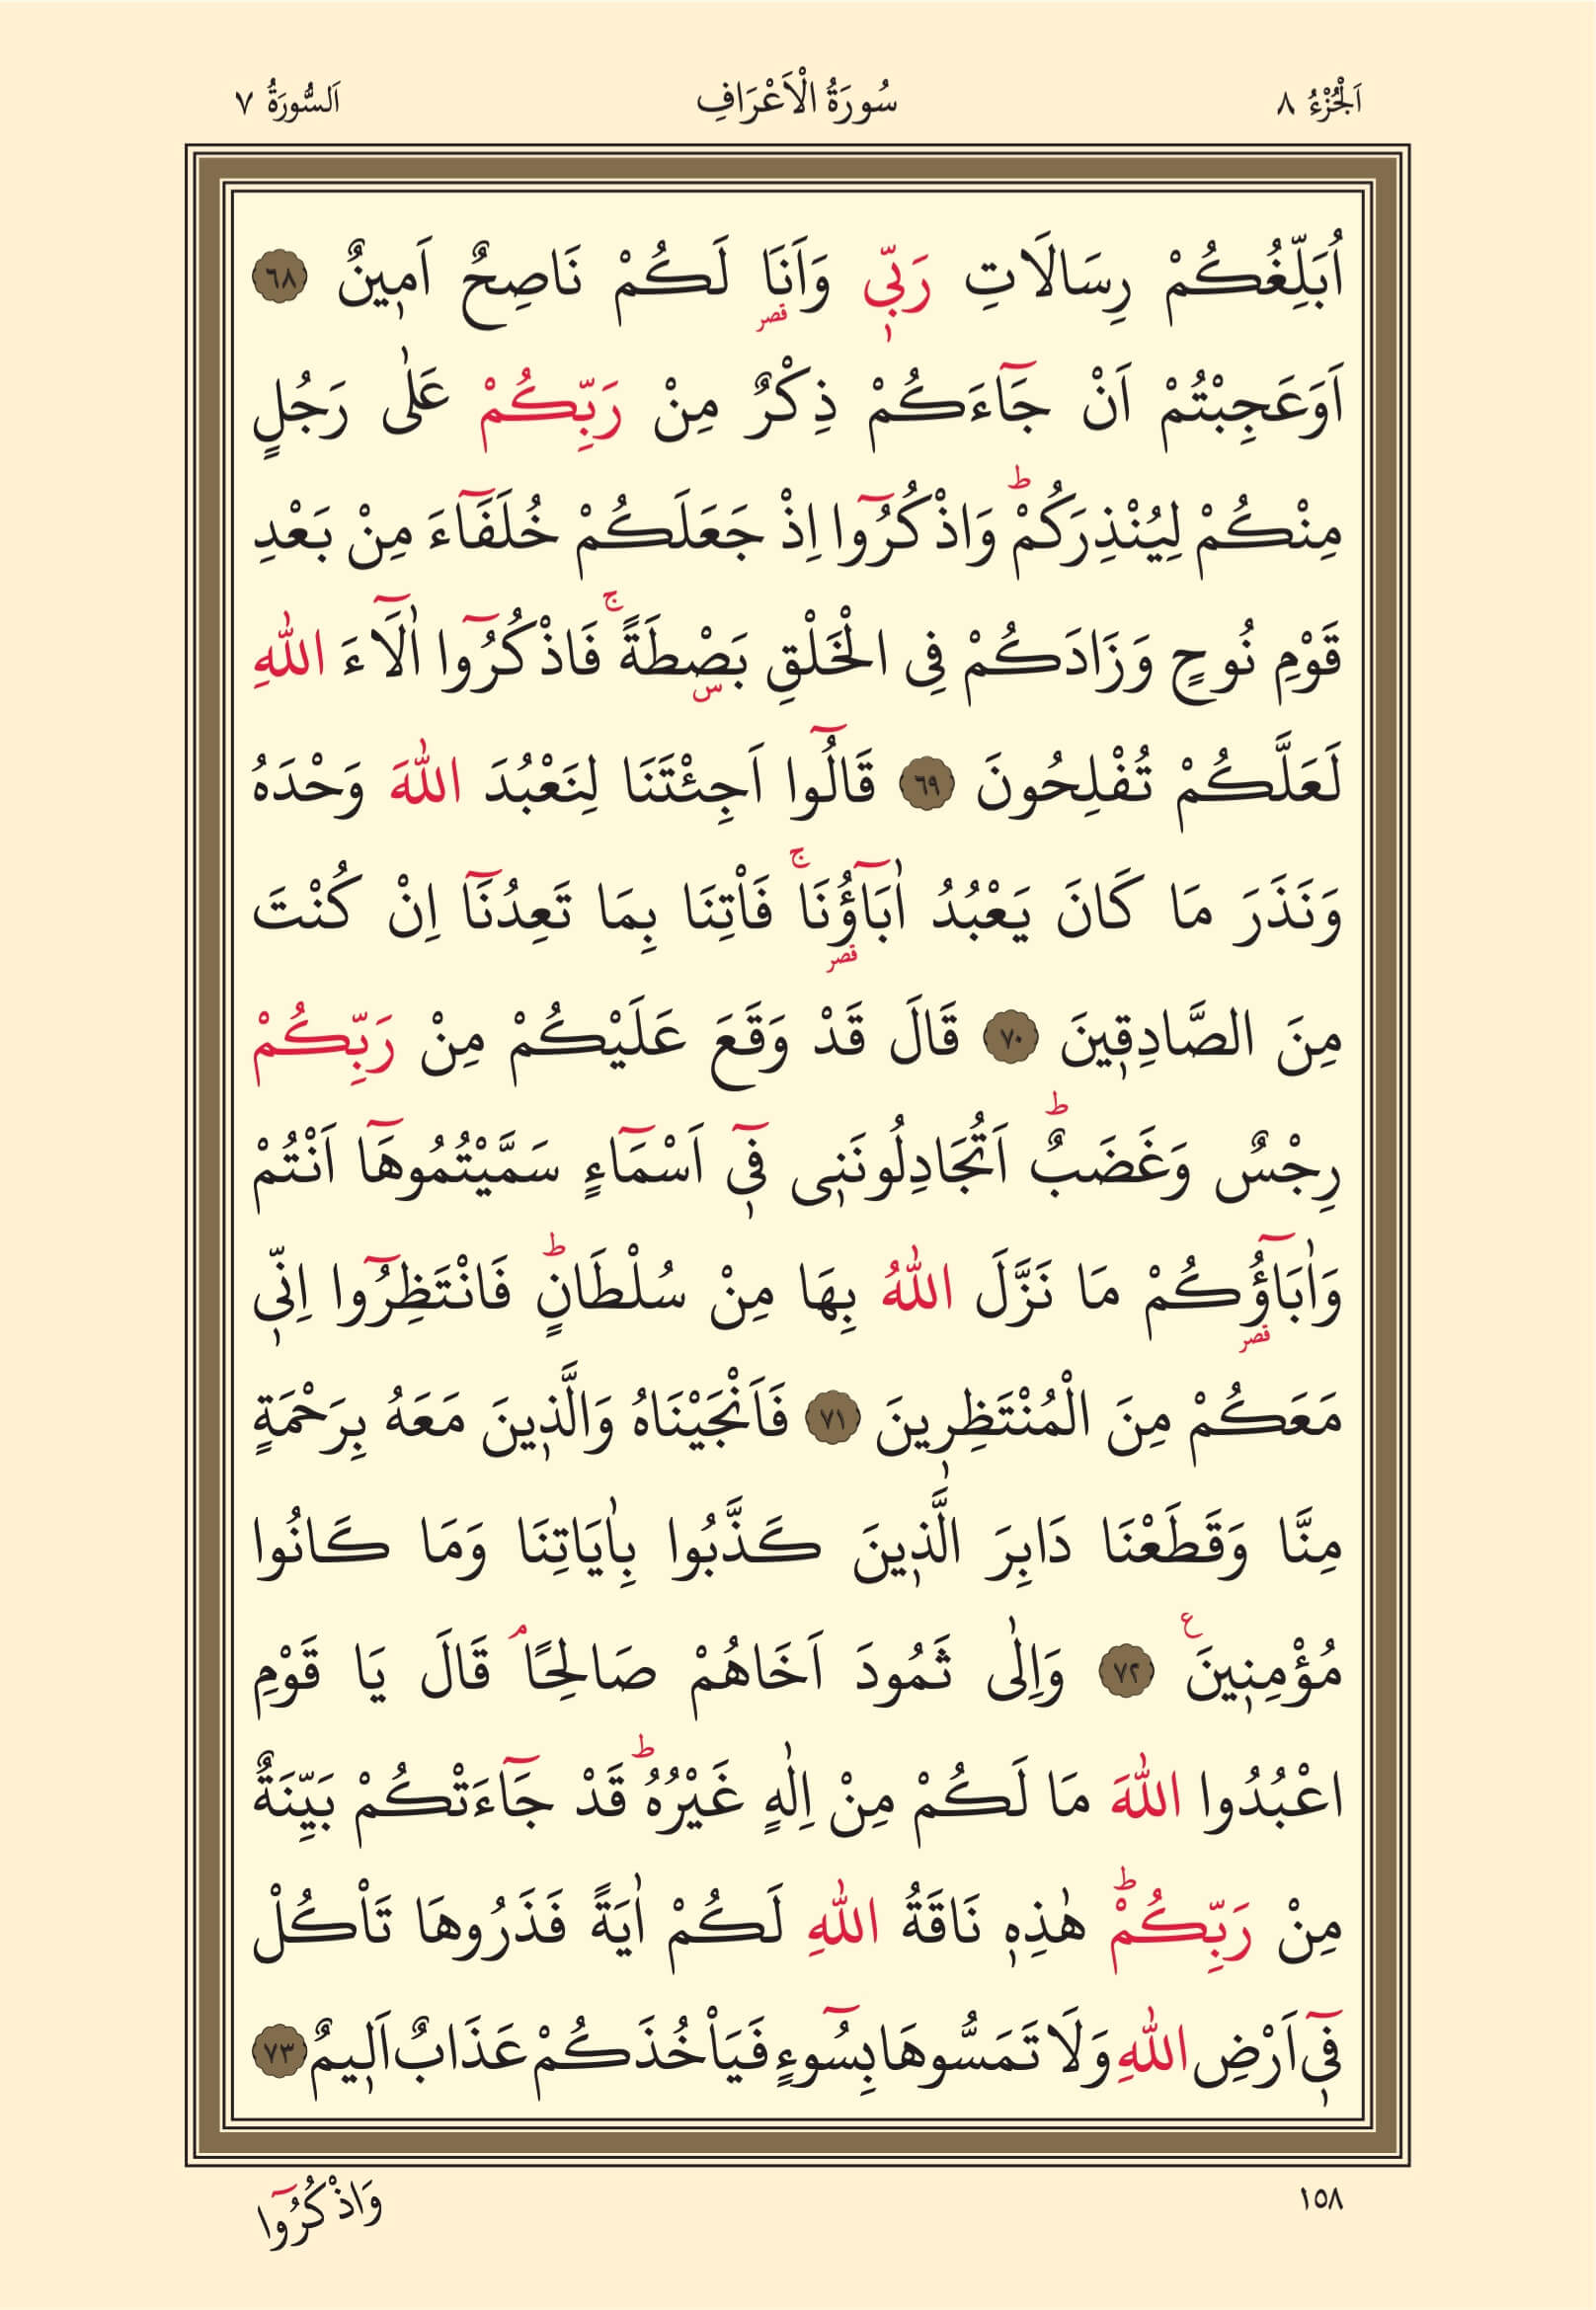 اَلْجُزْءُ ٨ سُورَةُ الْاَعْرَافِ اَلسُّورَةُ ٧
اُبَلِّغُكُمْ رِسَالَاتِ رَبّ۪ي وَاَنَا۬ لَكُمْ نَاصِحٌ اَم۪ينٌ ٦٨
قصر
اَوَعَجِبْتُمْ اَنْ جَٓاءَكُمْ ذِكْرٌ مِنْ رَبِّكُمْ عَلٰى رَجُلٍ
مِنْكُمْ لِيُنْذِرَكُمْۜ وَاذْكُرُٓوا اِذْ جَعَلَكُمْ خُلَفَٓاءَ مِنْ بَعْدِ
قَوْمِ نُوحٍ وَزَادَكُمْ فِي الْخَلْقِ بَصْۣطَةًۚ فَاذْكُرُٓوا اٰلَٓاءَ اللّٰهِ
لَعَلَّكُمْ تُفْلِحُونَ ٦٩ قَالُٓوا اَجِئْتَنَا لِنَعْبُدَ اللّٰهَ وَحْدَهُ
وَنَذَرَ مَا كَانَ يَعْبُدُ اٰبَٓاؤُ۬نَاۚ فَأْتِنَا بِمَا تَعِدُنَٓا اِنْ كُنْتَ
قصر
مِنَ الصَّادِق۪ينَ ٧٠ قَالَ قَدْ وَقَعَ عَلَيْكُمْ مِنْ رَبِّكُمْ
رِجْسٌ وَغَضَبٌۜ اَتُجَادِلُونَن۪ي ف۪ٓي اَسْمَٓاءٍ سَمَّيْتُمُوهَٓا اَنْتُمْ
وَاٰبَٓاؤُ۬كُمْ مَا نَزَّلَ اللّٰهُ بِهَا مِنْ سُلْطَانٍۜ فَانْتَظِرُٓوا اِنّ۪ي
قصر
مَعَكُمْ مِنَ الْمُنْتَظِر۪ينَ ٧١ فَاَنْجَيْنَاهُ وَالَّذ۪ينَ مَعَهُ بِرَحْمَةٍ
مِنَّا وَقَطَعْنَا دَابِرَ الَّذ۪ينَ كَذَّبُوا بِاٰيَاتِنَا وَمَا كَانُوا
مُؤْمِن۪ينَ۟ ٧٢ وَاِلٰى ثَمُودَ اَخَاهُمْ صَالِحًاۢ قَالَ يَا قَوْمِ
اعْبُدُوا اللّٰهَ مَا لَكُمْ مِنْ اِلٰهٍ غَيْرُهُۜ قَدْ جَٓاءَتْكُمْ بَيِّنَةٌ
مِنْ رَبِّكُمْۜ هٰذِه۪ نَاقَةُ اللّٰهِ لَكُمْ اٰيَةً فَذَرُوهَا تَأْكُلْ
ف۪ٓي اَرْضِ اللّٰهِ وَلَا تَمَسُّوهَا بِسُٓوءٍ فَيَأْخُذَكُمْ عَذَابٌ اَل۪يمٌ ٧٣
١٥٨ وَاذْكُرُٓوا